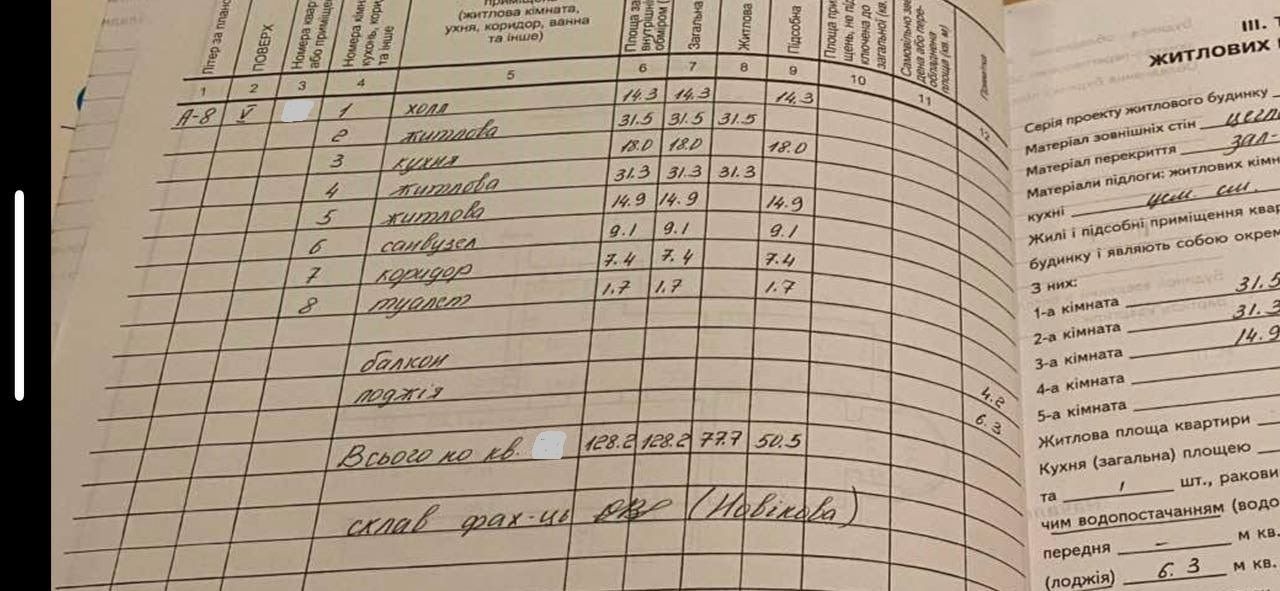 приміщення
(житлова кімната,
ухня, коридор, ванна
та інше)
Літер за плано
ПОВЕРХ
Номера квар
або приміщен
Номера кімн
кухонь, кори
та інше
Площа за
внутрішнім
обміром (
Загальна
Житлова
Підсобна
Площа при
щень, не під
ключена до
загальної (кв.
Самовільно зве
дена або пере-
обладнана
площа (кв. м)
Примітка
1 2 3 4 5 6 7 8 9 10 11 12
А-8 V 1 холл 14.3 14.3 14.3
2 житлова 31.5 31.5 31.5
3 кухня 18.0 18.0 18.0
4 житлова 31.3 31.3 31.3
5 житлова 14.9 14.9 14.9
6 санвузел 9.1 9.1 9.1
7 коридор 7.4 7.4 7.4
8 туалет 1.7 1.7 1.7
балкон 4.2
лоджія 6.3
Всього по кв. 128.2 128.2 77.7 50.5
склав фах-ць (Новікова)
III. Т
ЖИТЛОВИХ
Серія проекту житлового будинку
Матеріал зовнішніх стін цегл
Матеріал перекриття зал-
Матеріали підлоги: житлових кімн
кухні цем. ст.
Жилі і підсобні приміщення квар
будинку і являють собою окрем
З них:
1-а кімната 31.5
2-а кімната 31.3
3-а кімната 14.9
4-а кімната
5-а кімната
Житлова площа квартири
Кухня (загальна) площею
та 1 шт., ракови
чим водопостачанням (водо
передня – м кв.
(лоджія) 6.3 м кв.